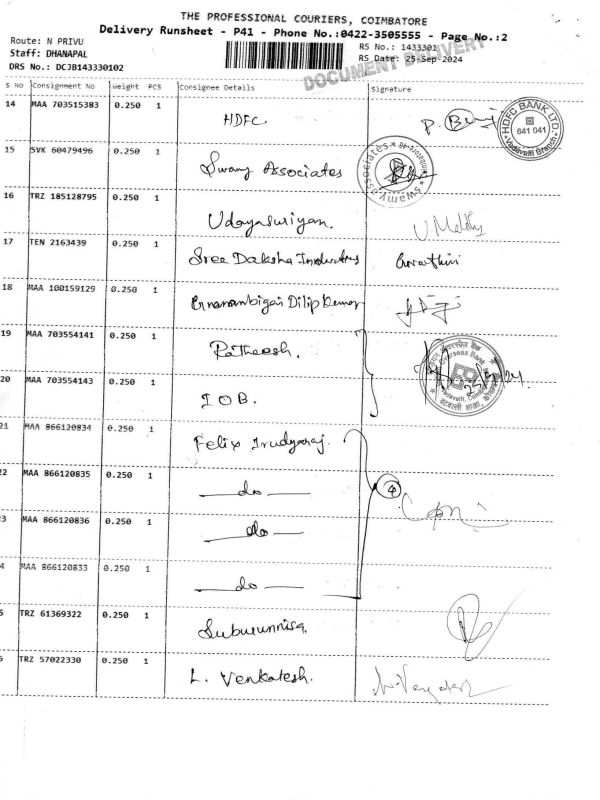 THE PROFESSIONAL COURIERS, COIMBATORE
Delivery Runsheet - P41 - Phone No.:0422-3505555 - Page No.:2
Route: N PRIVU
RS No.: 1433301
Staff: DHANAPAL
RS Date: 25-Sep-2024
DRS No.: DCJB143330102
DOCUMENT DELIVERY
S No Consignment No Weight PCS Consignee Details Signature
14 MAA 703515383 0.250 1 HDFC P.
HDFC BANK LTD. 641 041 Vadavalli Branch
15 SVK 60479496 0.250 1 Swamy Associates
swamy associates
16 TRZ 185128795 0.250 1 Udayasuriyan.
17 TEN 2163439 0.250 1 Sree Daksha
18 MAA 100159129 0.250 1 Dilip Kumar
19 MAA 703554141 0.250 1 Ratheesh.
Overseas Bank
20 MAA 703554143 0.250 1 IOB.
21 MAA 866120834 0.250 1 Felix Irudyaraj.
22 MAA 866120835 0.250 1 — do — 4
3 MAA 866120836 0.250 1 — do —
4 MAA 866120833 0.250 1 — do —
5 TRZ 61369322 0.250 1 Suburunnisa.
6 TRZ 57022330 0.250 1 L. Venkatesh.